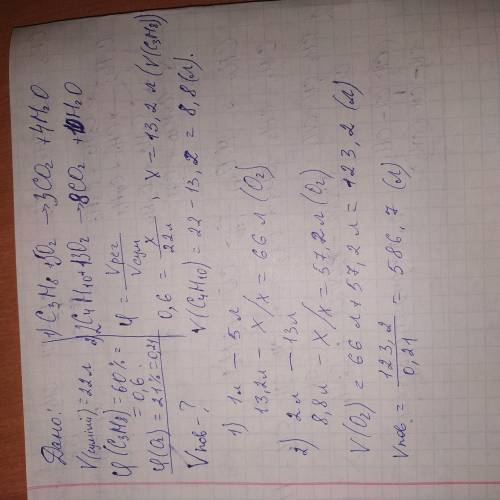 Дано:
V(суміші) = 22л
φ(C3H8) = 60% =
= 0,6.
φ(O2) = 21% = 0,21
Vпов - ?
1) C3H8 + 5O2 → 3CO2 + 4H2O
2) 2C4H10 + 13O2 → 8CO2 + 10H2O
φ = Vреч / Vсум
0,6 = x / 22л , x = 13,2 л (V(C3H8))
V(C4H10) = 22 - 13,2 = 8,8 (л).
1) 1л - 5л
13,2л - X / X = 66 л (O2)
2) 2л - 13л
8,8л - X / X = 57,2 л (O2)
V(O2) = 66 л + 57,2 л = 123,2 (л)
Vпов. = 123,2 / 0,21 = 586,7 (л)